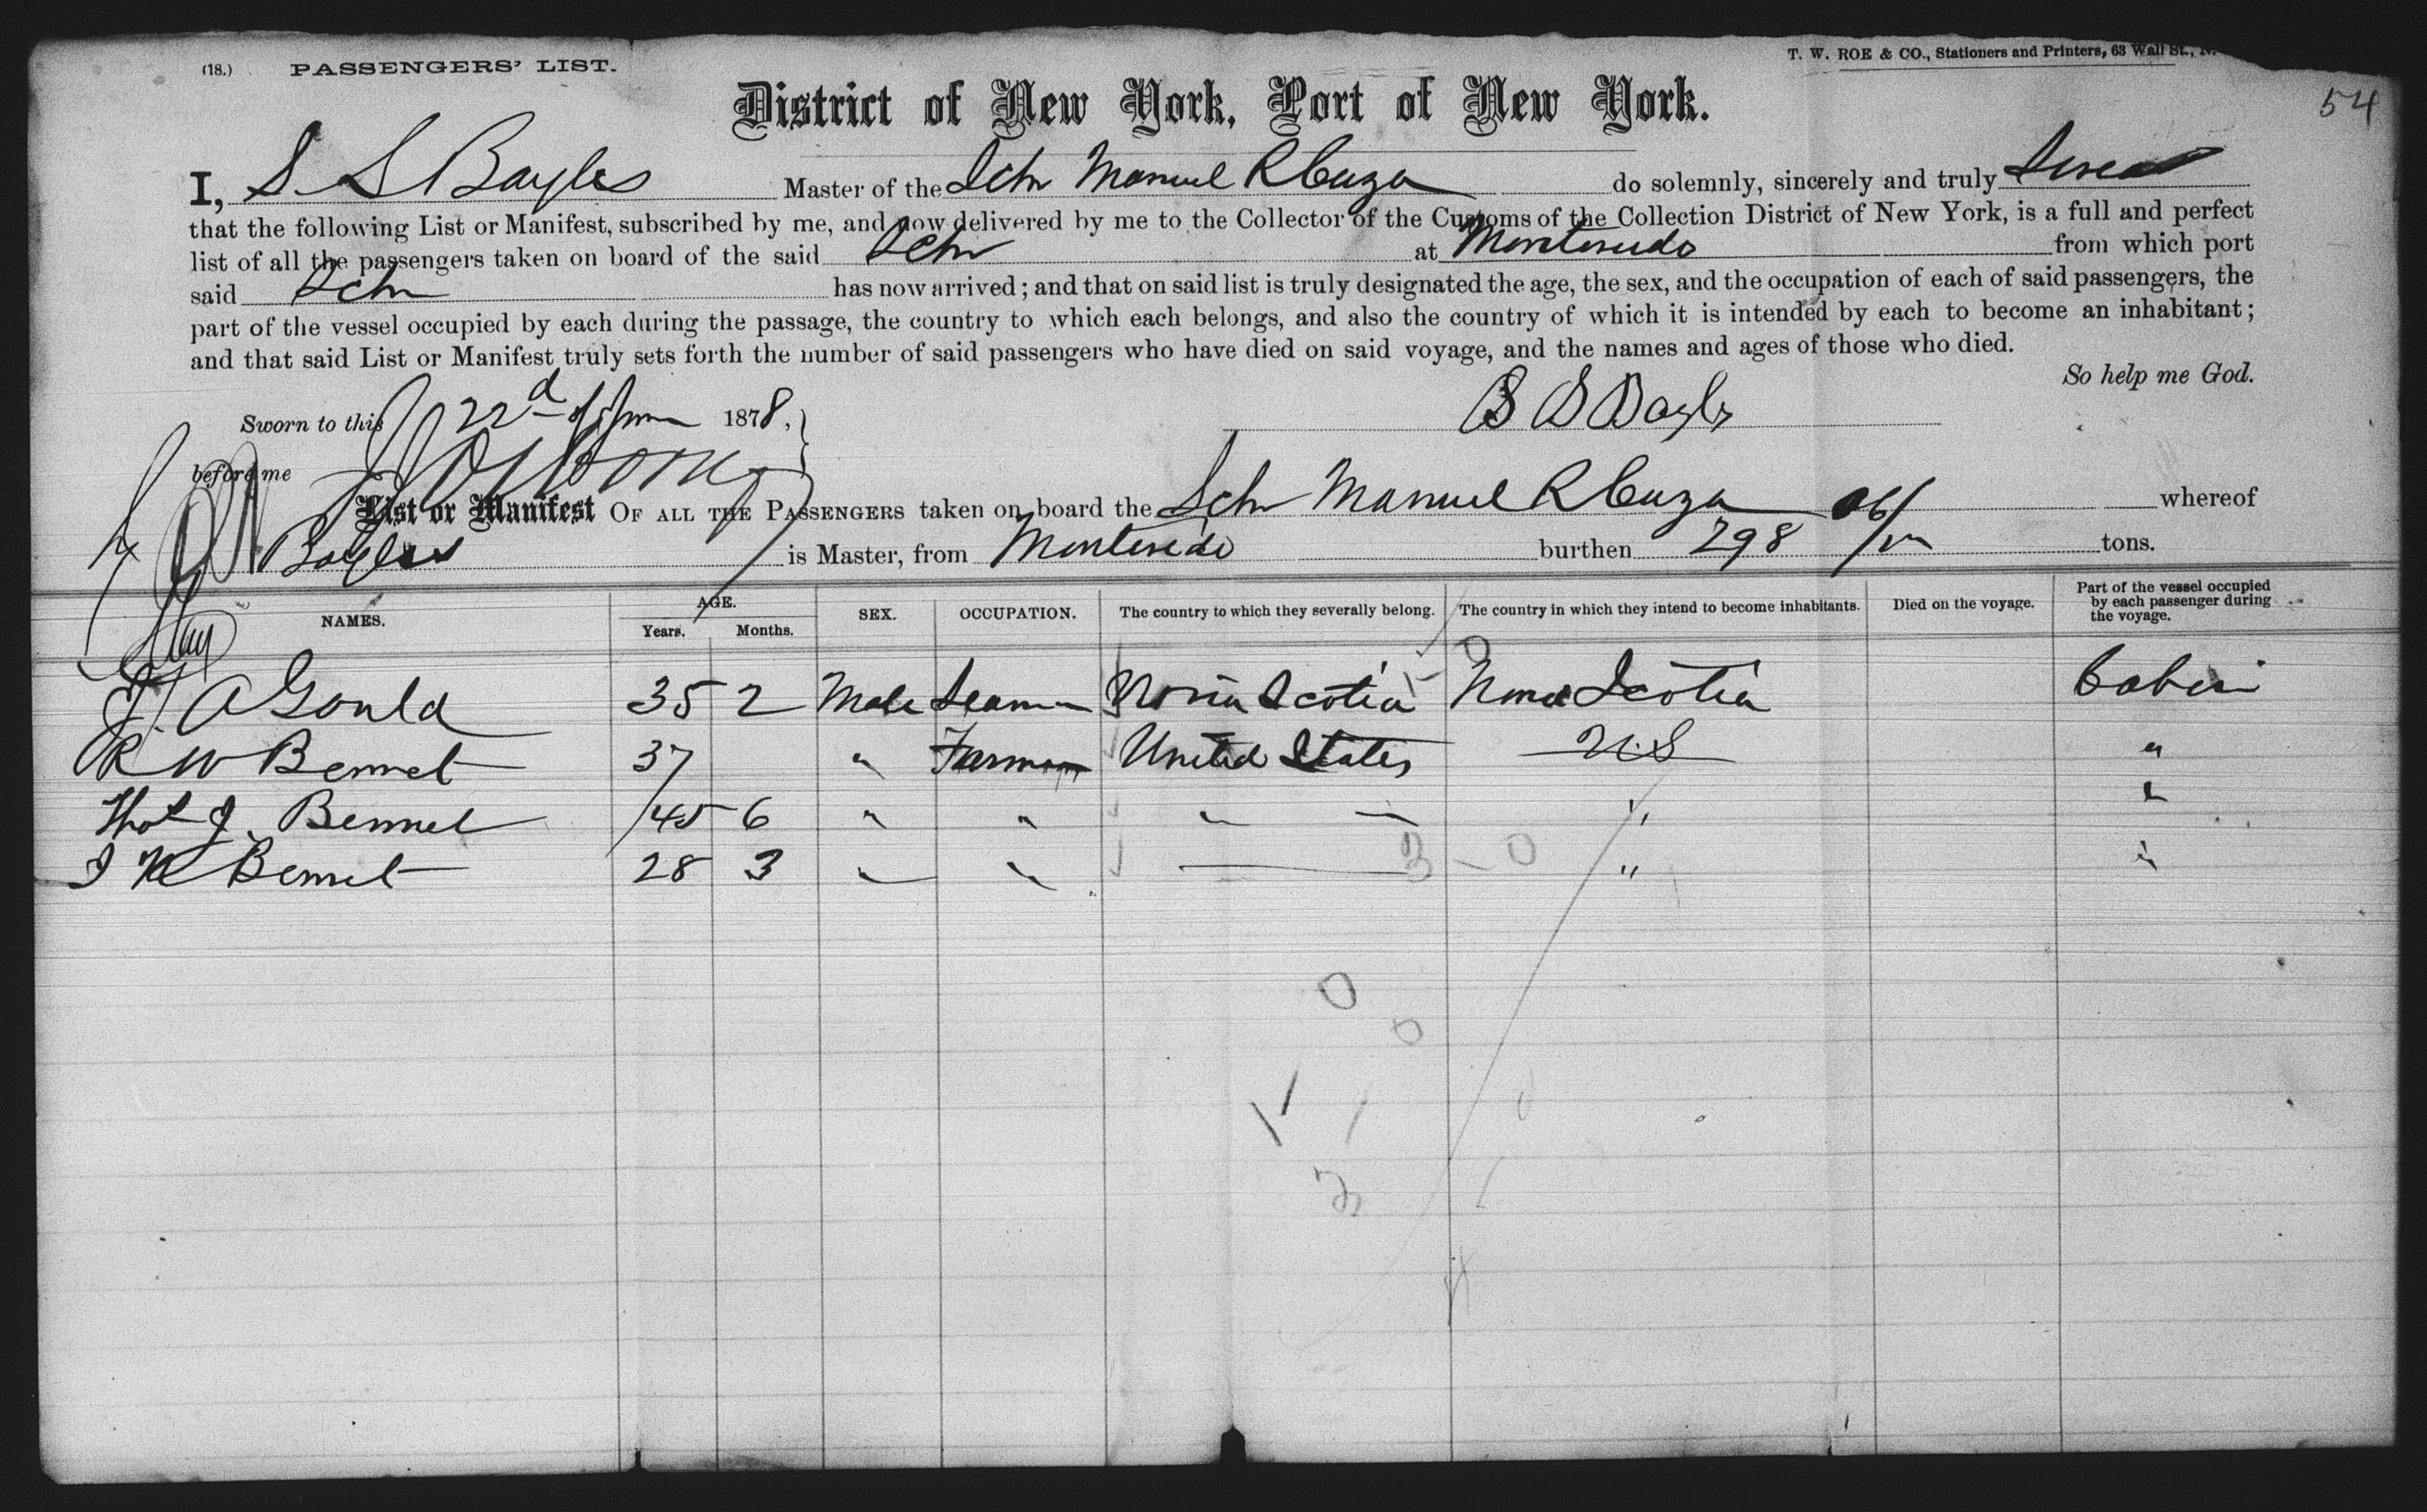 (18.) PASSENGERS' LIST.
T. W. ROE & CO., Stationers and Printers, 63 Wall St., N.
54
District of New York, Port of New York.
I, S S Bayles Master of the Schr Manuel R Cuza do solemnly, sincerely and truly Swear
that the following List or Manifest, subscribed by me, and now delivered by me to the Collector of the Customs of the Collection District of New York, is a full and perfect
list of all the passengers taken on board of the said Schr at Montevedo from which port
said Schr has now arrived; and that on said list is truly designated the age, the sex, and the occupation of each of said passengers, the
part of the vessel occupied by each during the passage, the country to which each belongs, and also the country of which it is intended by each to become an inhabitant;
and that said List or Manifest truly sets forth the number of said passengers who have died on said voyage, and the names and ages of those who died.
So help me God.
Sworn to this 22d of 1878,
S S Bayles
before me
List or Manifest OF ALL THE PASSENGERS taken on board the Schr Manuel R Cuza whereof
Bayles is Master, from Montevedo burthen 298 tons.
NAMES. AGE. Years. Months. SEX. OCCUPATION. The country to which they severally belong. The country in which they intend to become inhabitants. Died on the voyage. Part of the vessel occupied by each passenger during the voyage.
J A Gould 35 2 Male Seaman Nova Scotia Nova Scotia Cabin
R W Bennet 37 " Farmer United States U.S "
Thos J. Bennet 45 6 " " " " "
J M Bennet 28 3 " " " "
3 - 0